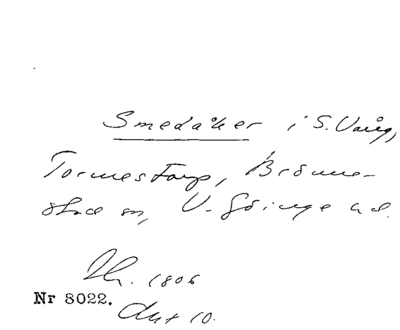 Smedåker i S. Vång,
Tormestorp, Brönne-
stad sn, V. Göinge hd.
1806
Nr 8022. Akt 10.